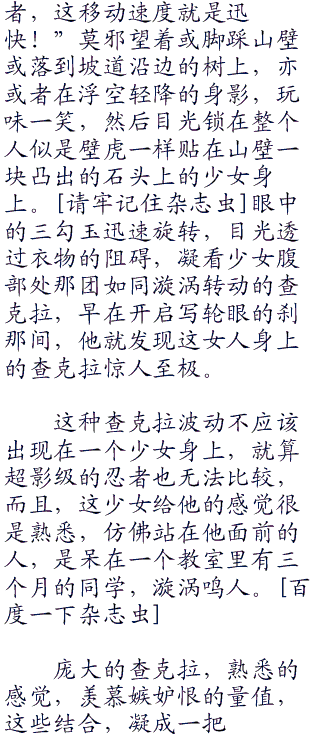 者，这移动速度就是迅
快！”莫邪望着或脚踩山壁
或落到坡道沿边的树上，亦
或者在浮空轻降的身影，玩
味一笑，然后目光锁在整个
人似是壁虎一样贴在山壁一
块凸出的石头上的少女身
上。[请牢记住杂志虫]眼中
的三勾玉迅速旋转，目光透
过衣物的阻碍，凝看少女腹
部处那团如同漩涡转动的查
克拉，早在开启写轮眼的刹
那间，他就发现这女人身上
的查克拉惊人至极。
这种查克拉波动不应该
出现在一个少女身上，就算
超影级的忍者也无法比较，
而且，这少女给他的感觉很
是熟悉，仿佛站在他面前的
人，是呆在一个教室里有三
个月的同学，漩涡鸣人。[百
度一下杂志虫]
庞大的查克拉，熟悉的
感觉，羡慕嫉妒恨的量值，
这些结合，凝成一把